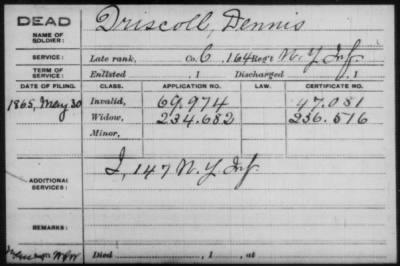 DEAD
NAME OF SOLDIER: Driscoll, Dennis
SERVICE: Late rank, Co. C, 164 Reg't N.Y. Inf
TERM OF SERVICE: Enlisted , 1 Discharged , 1
DATE OF FILING. CLASS. APPLICATION NO. LAW. CERTIFICATE NO.
1865, May 30 Invalid, 69.974 47.081
Widow, 234.682 236.516
Minor,
ADDITIONAL SERVICES: I, 147 N.Y. Inf.
REMARKS:
Died , 1 , at